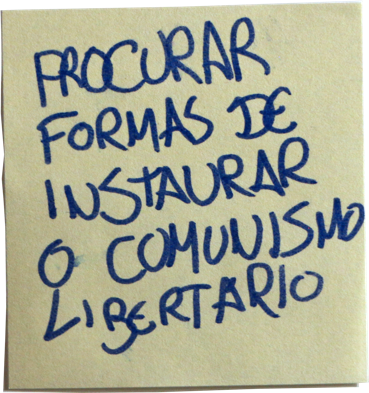 PROCURAR
FORMAS DE
INSTAURAR
O COMUNISMO
LIBERTÁRIO